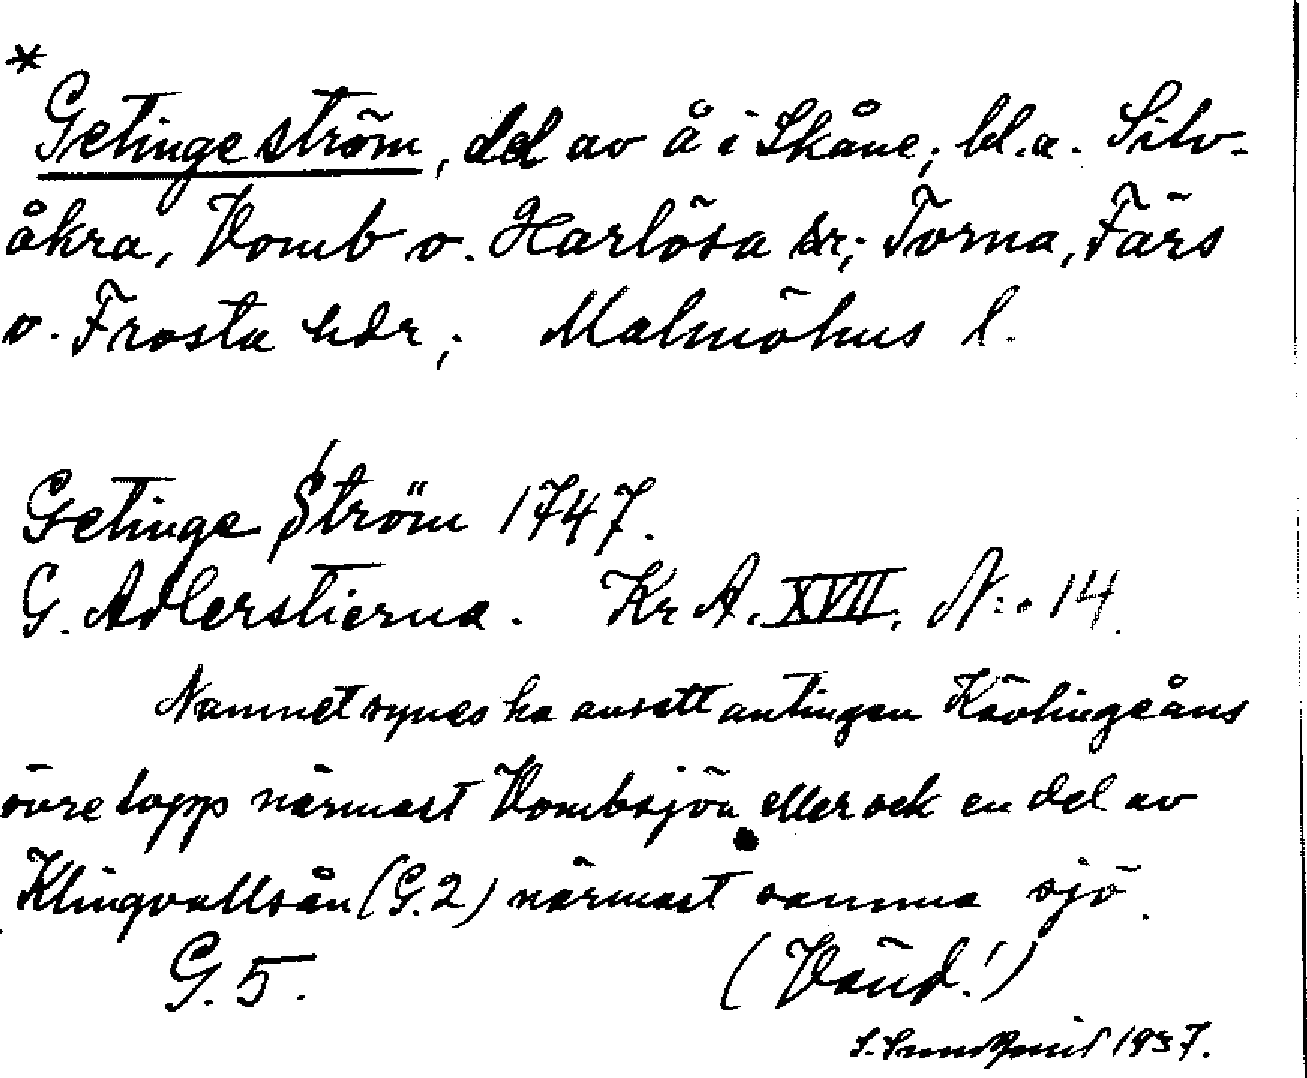 *
Getingeström, del av å i Skåne; bl.a. Silv-
åkra, Vomb o. Harlösa sr; Torna, Färs
o. Frosta hdr; Malmöhus l.
Getinge Ström 1747.
G. Adlerstierna. Kr A. XVII. N:o 14.
Namnet synes ha avsett antingen Kävlingeåns
övre lopp närmast Vombsjön eller ock en del av
Klingvallsån (G.2) närmast samma sjö.
G. 5. (Vänd!)
S. 1937.